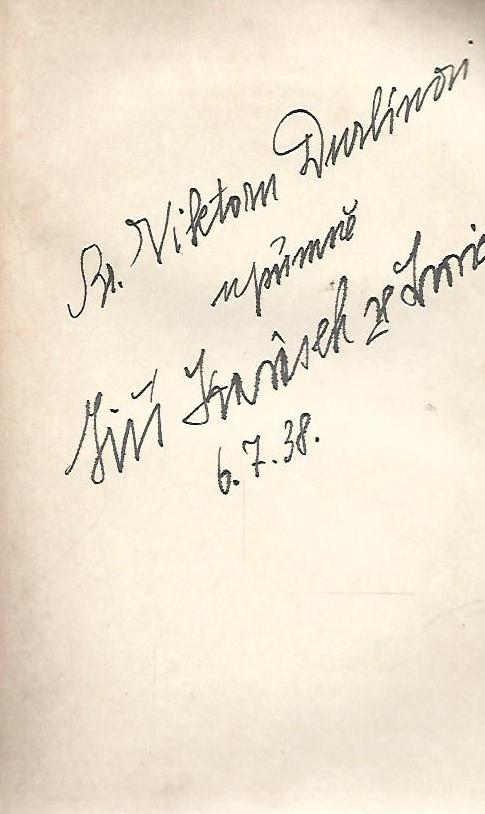 Br. Viktoru Durlínovi
upřímně
Jiří Karásek ze Lvovic
6.7.38.